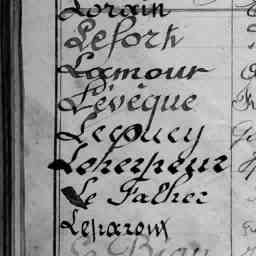 Lorain
Lefort
Lamour
Lévêque
Lecouey
Leherpeur
Le Falher
Leparoux
Le Bran